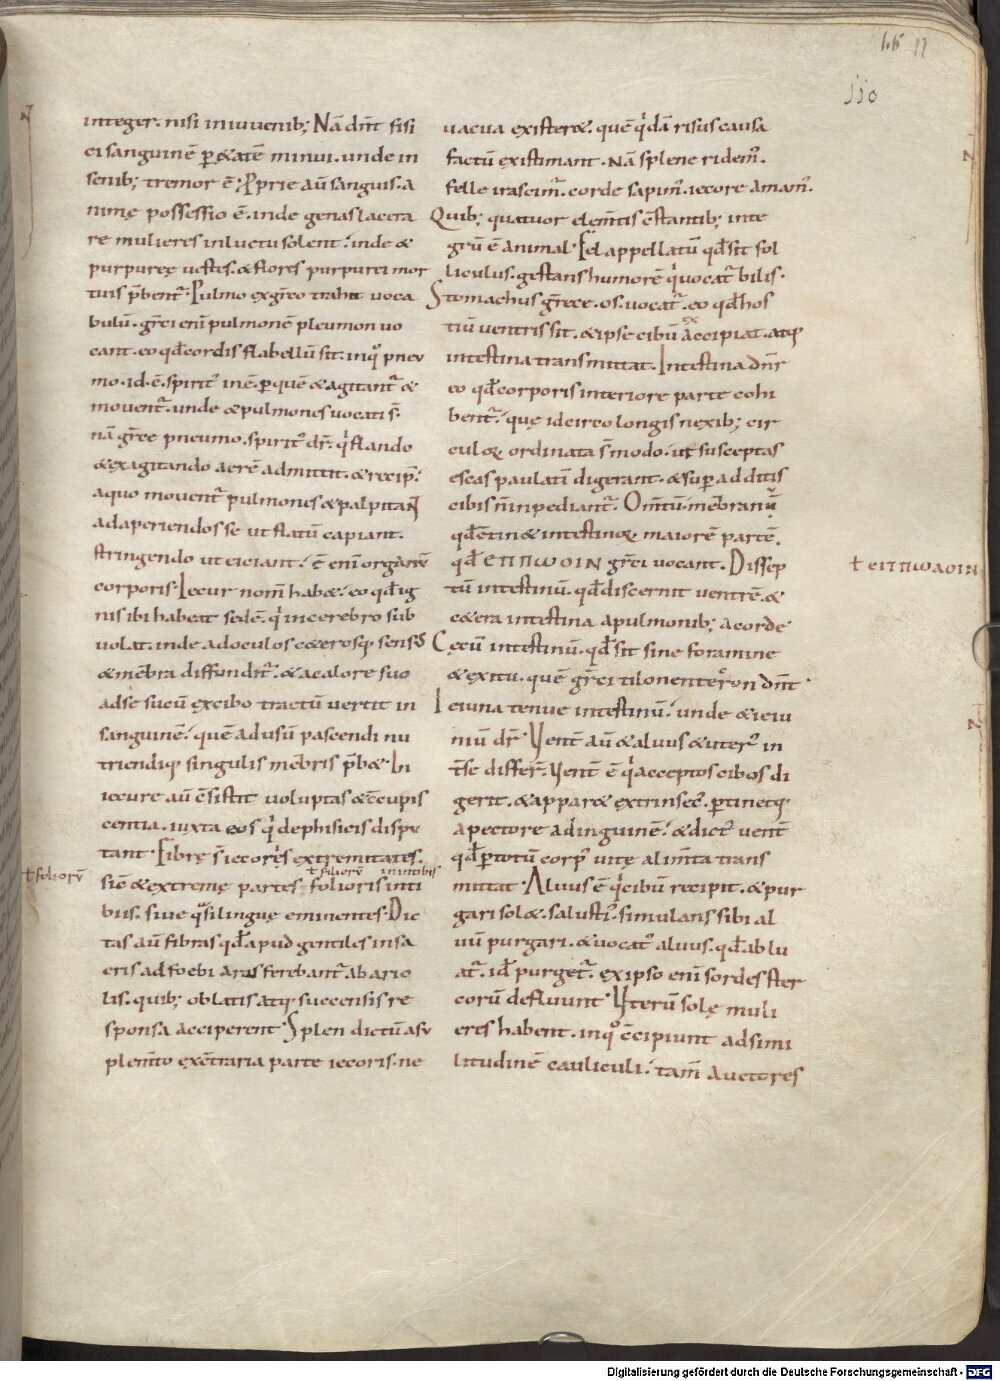 iio
integer. nisi in iuuenib; Nā dn̄t fisi
ci sanguinē p̲ &atē minui. unde in
senib; tremor ē; p̲prie aū sanguis. a
nimę possessio ē. inde genas lacera
re mulieres in luctu solent. inde &
purpureę uestes. & flores purpurei mor
tuis p̄bent᷑. Pulmo ex gręco trahit uoca
bulū. gr̄ci enī pulmonē pleumon uo
cant. eo qđ cordis flabellū sit. in quͦ pneu
mo. id. ē. spirit᷑ inē. p̲ quē & agitant᷑ &
mouent᷑. unde & pulmones uocati s̄.
nā gr̄ce pneumo. spirit᷑ dr̄. qͥ flando
& exagitando aerē admittit. & recip̄.
a quo mouent᷑ pulmones & palpitant
ad aperiendo se ut flatū capiant.
stringendo ut eiciant. ē enī organū
corporis. Iecur nom̄ hab&. eo qđ ig
nis ibi habeat sedē. qͥ in cerebro sub
uolat. inde ad oculos c&erosq; sensus
& mēbra diffundit᷑. & a calore suo
ad se sucū ex cibo tractū uertit in
sanguinē. quē ad usū pascendi nu
triendiq; singulis mēbris p̄b&. In
iecure aū c̄sistit uoluptas & c̄cupis
centia. iuxta eos qͥ de phisicis dispu
tant. Fibrę s̄ iecoris extremitates.
ꝉ folioꝝ
ꝉ folioꝝ in intibis
sic & extremę partes folioris inti
bus. siue qͣsi linguę eminentes. Dic
tas aū fibras qđ apud gentiles in sa
cris ad foebi aras ferebant᷑ ab ario
lis. quib; oblatis atq; succensis re
sponsa acciperent. Splen dictū a su
plem̄to ex c̄traria parte iecoris. ne
uacua exister&. quē qͥdā risus causa
factū existimant. Nā splene ridem᷑.
felle irascim᷑. corde sapim᷑. iecore amam᷑.
Quib; quatuor elem̄tis c̄stantib; inte
grū ē animal. Fel appellatū qđ sit fol
liculus. gestans humorē qͥ uocat᷑ bilis.
Stomachus gr̄ece. os. uocat᷑. eo qđ hos
tiū uentris sit. & ipse cibū accipiat. atq;
ex
intestina transmittat. Intestina dn̄r
eo qđ corporis interiore parte cohi
bent᷑. quę idcirco longis nexib; cir
culoꝝ ordinata s̄ modo. ut susceptas
escas paulatī digerant. & sup̲ additis
cibis n̄ inpediant᷑. Om̄tū. mēbranū
qđ c̄tin& intestinoꝝ maiorē partē.
qđ ЄΠΠωΟΙΝ gr̄ci uocant. Dissep
ꝉ ЄΙΠΠωΔΟΙΝ
tū intestinū. qđ discernit uentrē. &
c&era intestina a pulmonib; a corde
Cęcū intestinū. qđ sit sine foramine
& exitu. quē gr̄ci tilonenteͬon dn̄t.
Ieiuna tenue intestinū. unde & ieiu
niū dr̄. Vent᷑ aū & aluus & uter᷑ in
t̄ se differ̄. Vent᷑ ē qͥ acceptos cibos di
gerit. & appar& extrinsec᷑. p̲tinetq;
a pectore ad inguinē. & dict᷑ vent᷑
qđ p̲ totū corp᷑ uitę alim̄ta trans
mittat. Aluus ē qͥ cibū recipit. & pur
gari sol&. salusti᷑. simulans sibi al
uū purgari. & uocat᷑ aluus. qđ ablu
at᷑. id purget᷑. ex ipso enī sordes ster
corū defluunt. Vterū solę muli
eres habent. in quͦ c̄cipiunt ad simi
litudinē cauliculi. tam̄ auctores
Digitalisierung gefördert durch die Deutsche Forschungsgemeinschaft - DFG